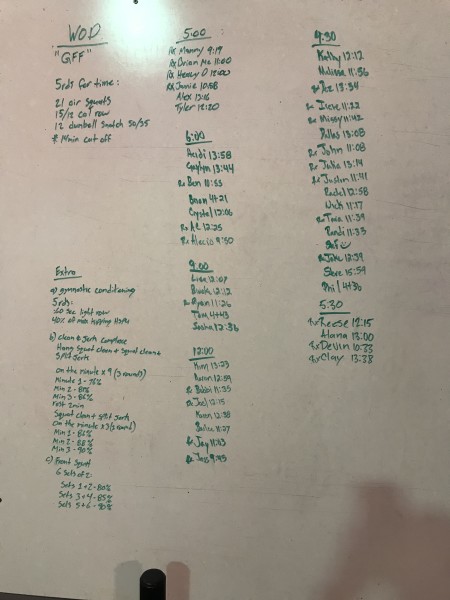 WOD
"GFF"
5rds for time:
21 air squats
15/12 cal row
12 dumbell snatch 50/35
Extra
a) gymnastic conditioning
5rds:
:60 sec light row
b) clean & Jerk complex
Hang squat clean + squat clean +
Split Jerk
on the minute x 9 (3 rounds)
Minute 1 - 76%
Min 2 - 81%
Min 3 - 86%
Rest 2min
Squat clean + split Jerk
on the minute x3 (1 round)
Min 1 - 86%
Min 2 - 88%
Min 3 - 90%
c) Front Squat
6 sets of 2:
Sets 1+2 - 80%
Sets 3+4 - 85%
Sets 5+6 - 90%
5:00
Rx Manny 9:19
Rx Brian Mc 11:00
Rx Henry D 12:00
Rx Jamie 10:58
Alex 13:16
Tyler 12:20
6:00
Heidi 13:58
13:44
Rx Ben 11:53
Brian 4+21
Crystal 12:06
Rx Al 12:25
Rx Alecia 9:50
9:00
Lisa 12:07
12:12
Rx Ryan 11:26
Tom 4+43
Sasha 12:36
12:00
Kim 13:23
12:59
Rx Bobbi 11:35
Rx Joel 12:15
Karen 12:38
11:27
Rx Jay 11:43
Rx Jess 9:43
4:30
Kathy 12:12
Melissa 11:56
13:34
Rx Irene 11:22
Rx Missy 11:42
Dallas 13:08
Rx John 11:08
Rx Julie 13:14
Rx Justin 11:41
12:58
Nick 11:17
Rx Tom 11:39
Randi 11:33
Rx Jake 12:39
Steve 15:54
Phil 4+36
5:30
Rx Reese 12:15
Alana 13:00
Rx Devin 10:33
Rx Clay 13:38